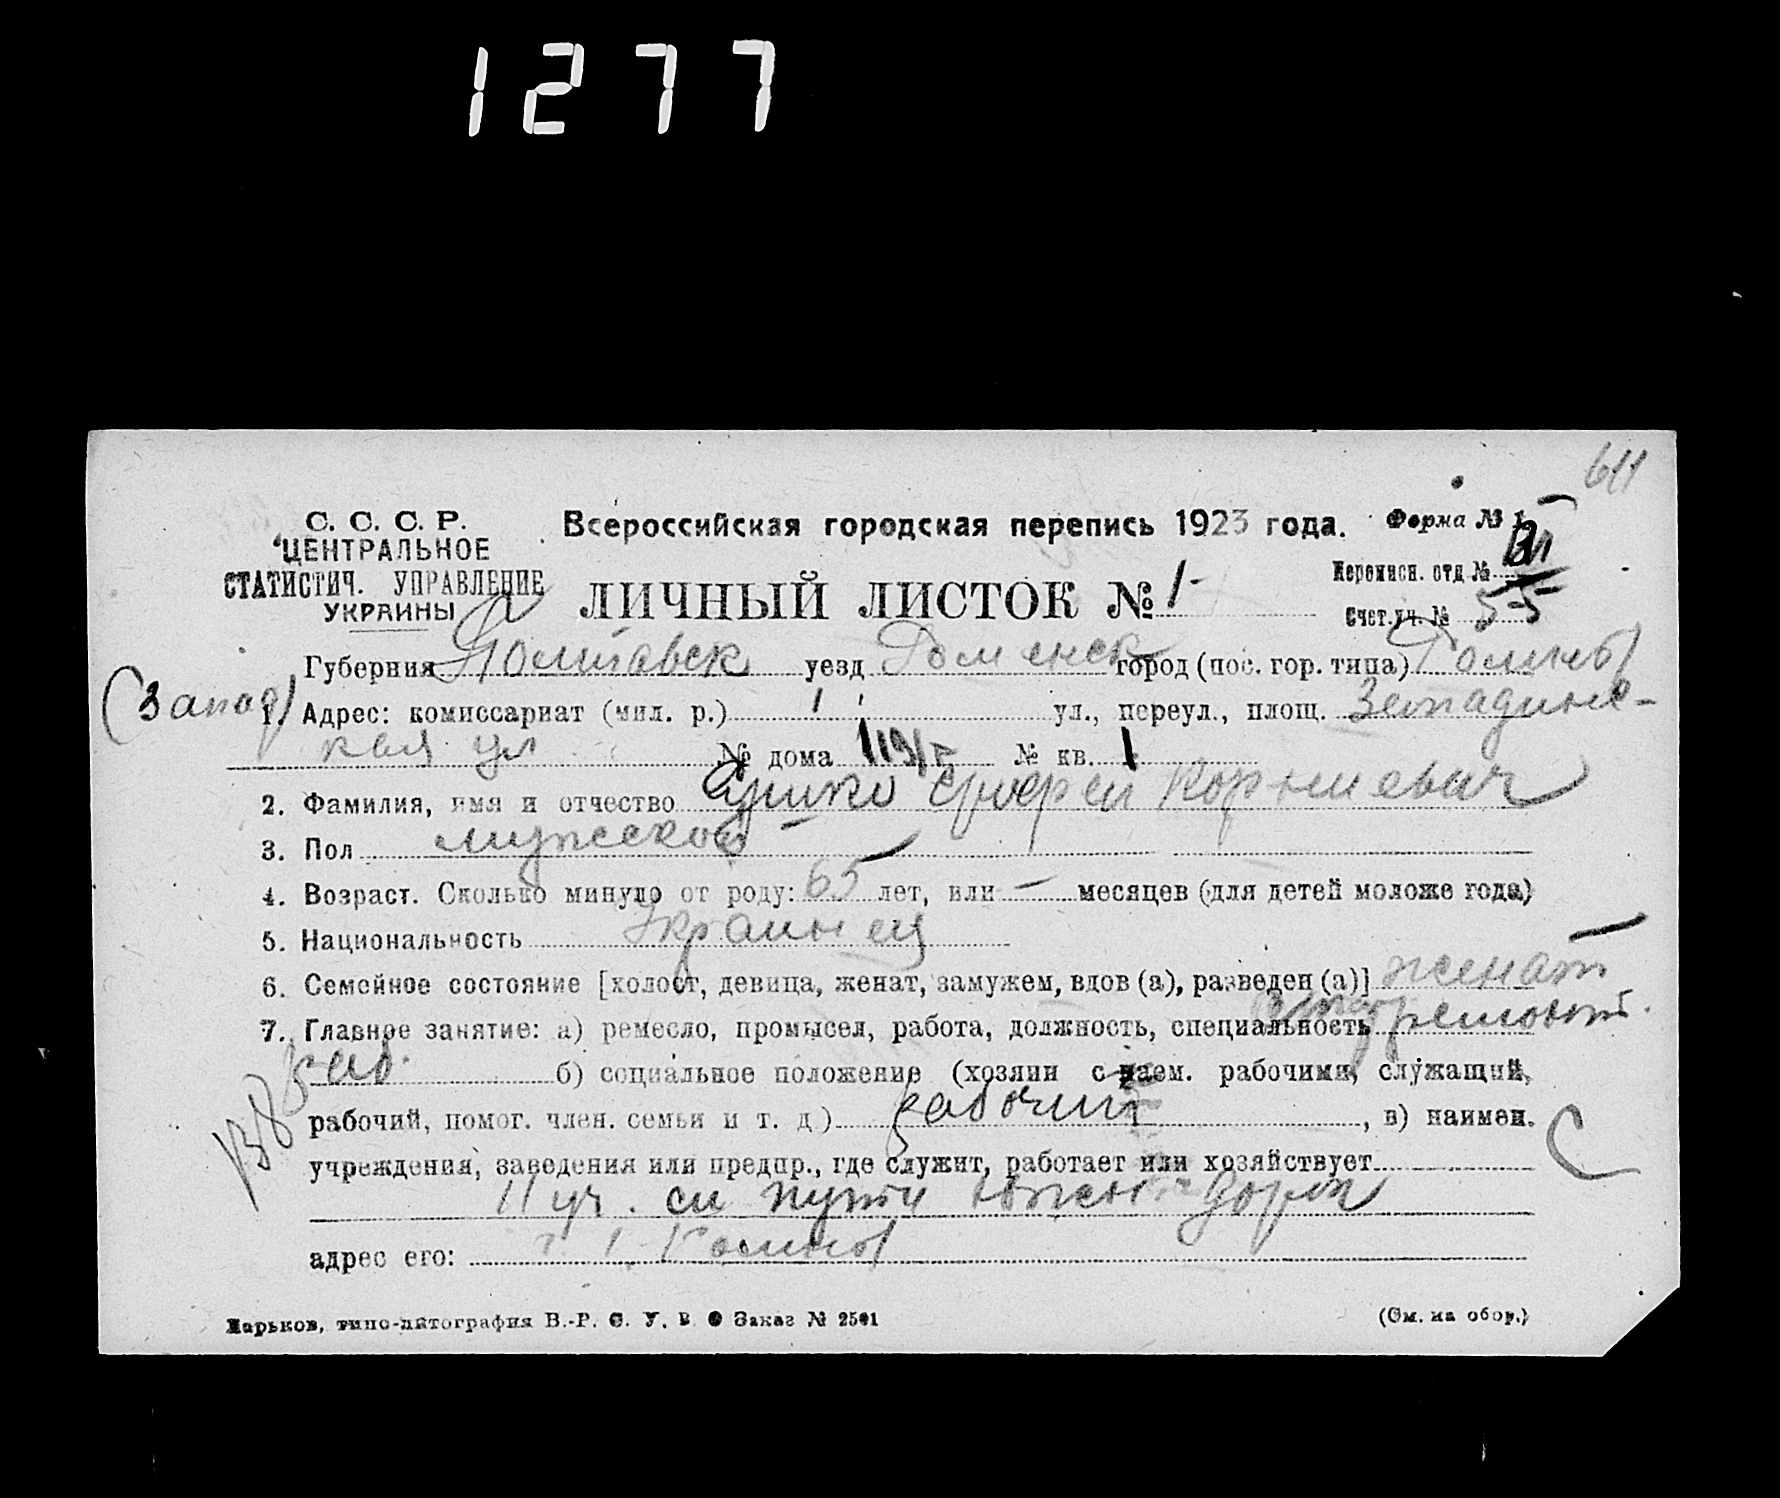 1277
611
С. С. С. Р.
ЦЕНТРАЛЬНОЕ
СТАТИСТИЧ. УПРАВЛЕНИЕ
УКРАИНЫ
Всероссийская городская перепись 1923 года.
Форма № 1
ЛИЧНЫЙ ЛИСТОК № 1-
Переписн. отд №
Счет. уч. № 55
Губерния Полтавск уезд Роменск город (пос. гор. типа) Ромны
(Запад)
1. Адрес: комиссариат (мил. р.) 1 ул., переул., площ.
кая ул № дома № кв. 1
2. Фамилия, имя и отчество Корниевич
3. Пол мужской
4. Возраст. Сколько минуло от роду: 65 лет, или — месяцев (для детей моложе года)
5. Национальность Украинец
6. Семейное состояние [холост, девица, женат, замужем, вдов (а), разведен (а)] женат
7. Главное занятие: а) ремесло, промысел, работа, должность, специальность ремонтн.
раб. б) социальное положение (хозяин с наем. рабочими, служащий,
рабочий, помог. член. семьи и т. д) рабочий, в) наимен.
учреждения, заведения или предпр., где служит, работает или хозяйствует
11 уч. сл пути Южн дорог
адрес его: г. Ромны
Харьков, типо-литография В.-Р. С. У. В Заказ № 2501
(См. на обор.)